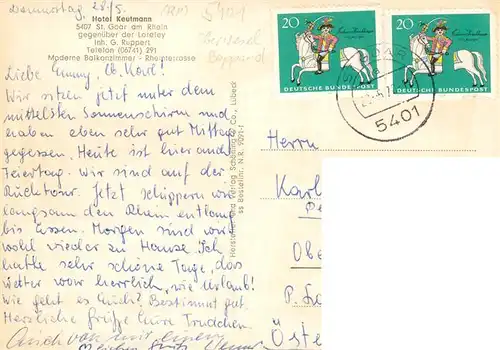 Donnerstag 28/5.
Hotel Keutmann
5407 St. Goar am Rhein
gegenüber der Loreley
Inh. G. Ruppert
Telefon (06741) 291
Moderne Balkonzimmer - Rheinterrasse
5401
Boppard
Liebe Emmy, lb. Karl!
Wir sitzen jetzt unter dem
mittelsten Sonnenschirm und
haben eben sehr gut Mittag
gegessen. Heute ist hier auch
Feiertag. Wir sind auf der
Rücktour. Jetzt schippern wir
langsam den Rhein entlang
bis Essen. Morgen sind wir
wohl wieder zu Hause. Ich
hatte sehr schöne Tage, das
Wetter war herrlich, wie Urlaub!
Wie geht es Euch? Bestimmt gut.
Herzliche Grüße Eure Trudchen.
Auch von mir einen
Hersteller und Verlag Schöning & Co., Lübeck
ss Bestellnr. N.R. 9091-f
20
DEUTSCHE BUNDESPOST
20
DEUTSCHE BUNDESPOST
5401
Herrn
Karl
Obe
P.
Öste